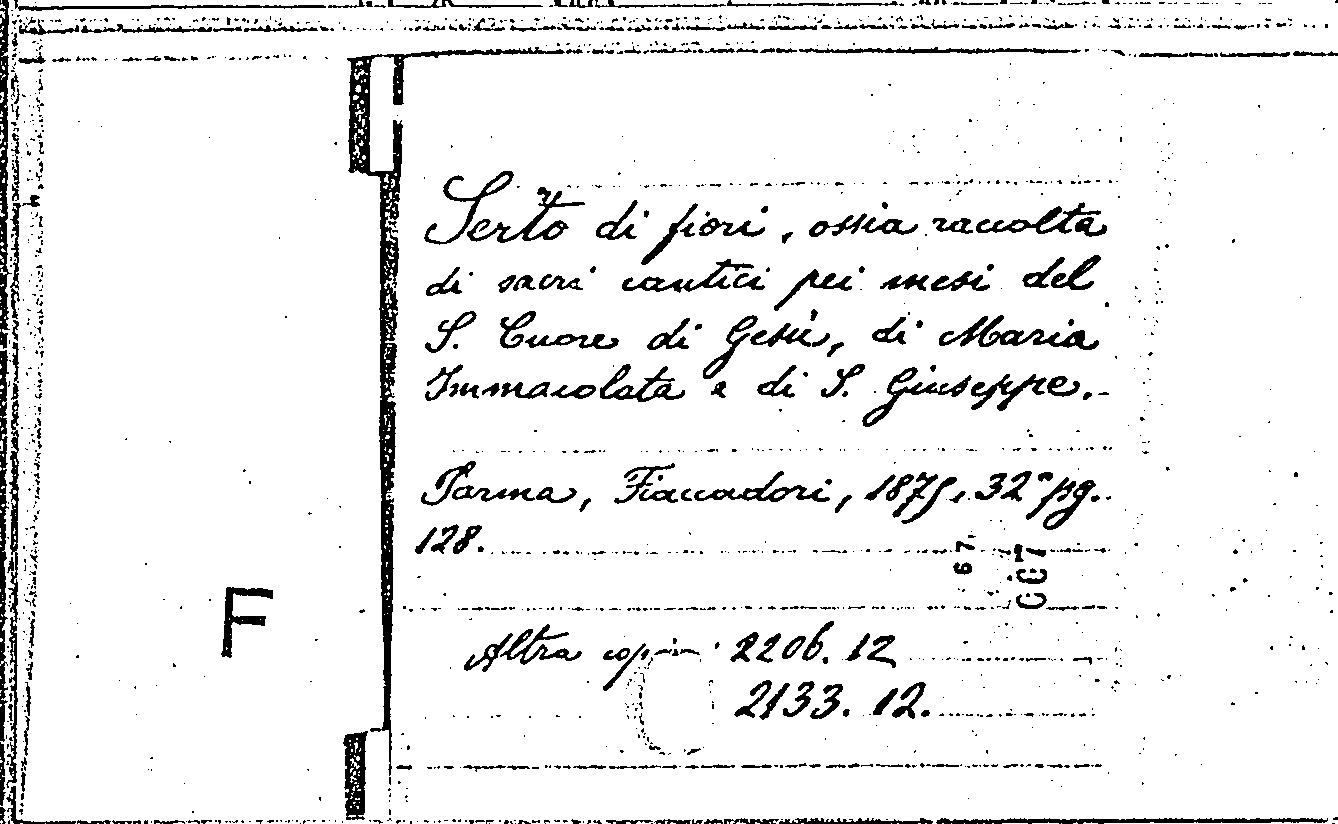 Serto di fiori, ossia raccolta
di sacri cantici pei mesi del
S. Cuore di Gesù, di Maria
Immacolata e di S. Giuseppe.
Parma, Fiaccadori, 1875, 32° pg.
128.
67
F
Altra copia 2206. 12
2133. 12.